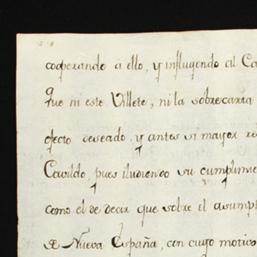 cooperando a ello, y influyendo al Ca
que ni este Villete, ni la sobrecarta
efecto deseado, y antes si mayor re
Cavildo, pues iludiendo su cumplimie
como el de decir que sobre el asumpt
de Nueva España, con cuyo motivo